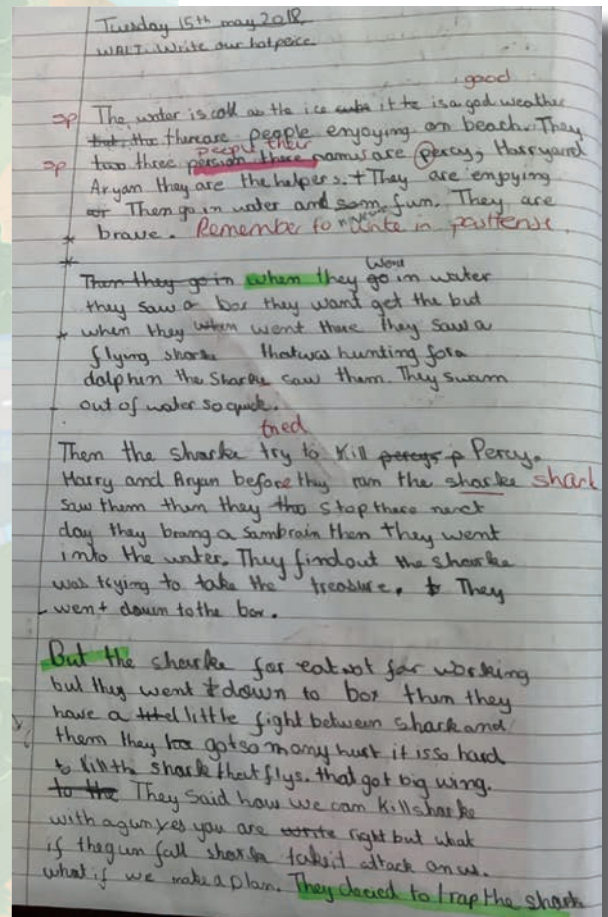 Tuesday 15th may 2018
WALT. Write our hot peice
good
sp The water is cold as the ice cube it te is a god weather
that. the thereare people enjoying on beach. They
peeple their
sp two three persion there namus are percy, Harryand
Aryam they are the helpers. + They are enpying
or Then go in water and som fun. They are
brave. Remember to write in past tense.
went
Then they go in when they go in water
they saw a box they want get the but
when they when went thare they saw a
flying sharke thatwas hunting fora
dolphin the Sharke saw them. They swam
out of water so quick.
tried
Then the sharke try to kill percys p Percy.
Harry and Aryan before thy ran the sharke shark
saw them then they tho stop there next
day they brang a sambrain then they went
into the water. They findout the sharke
was trying to take the treasure. to They
went down to the box.
But the sharke for eat not for working
but they went t down to box then they
have a littel little fight between shark and
them they got so many hurt it isso hard
to kill th shark that flys. that got big wing.
to the They Said how we can kill sharke
with a gun yes you are write right but what
if thegun fall sharke takeit attack on us.
what if we make a plan. They decied to trap the shark